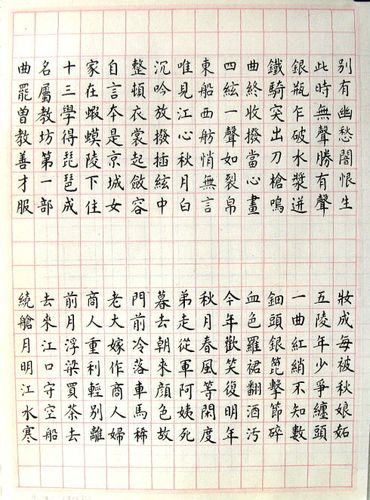 別有幽愁闇恨生
此時無聲勝有聲
銀瓶乍破水漿迸
鐵騎突出刀槍鳴
曲終收撥當心畫
四絃一聲如裂帛
東船西舫悄無言
唯見江心秋月白
沉吟放撥插絃中
整頓衣裳起斂容
自言夲是京城女
家在蝦蟆陵下住
十三學得琵琶成
名屬教坊第一部
曲罷曾教善才服
妝成每被秋娘妬
五陵年少爭纏頭
一曲紅綃不知數
鈿頭銀篦擊節碎
血色羅裙翻酒污
今年歡笑復明年
秋月春風等閒度
弟走從軍阿姨死
暮去朝來顏色故
門前冷落車馬稀
老大嫁作商人婦
商人重利輕別離
前月浮梁買茶去
去來江口守空船
繞艙月明江水寒